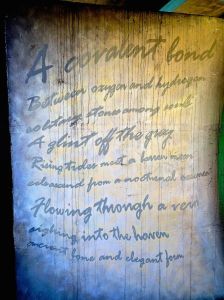 A covalent bond
Between oxygen and hydrogen
solitary stones among
A glint off the grey
Rising tides meet a barren moon
from a nocturnal
Flowing through a vein
sighing into the haven
ancient bone and elegant form